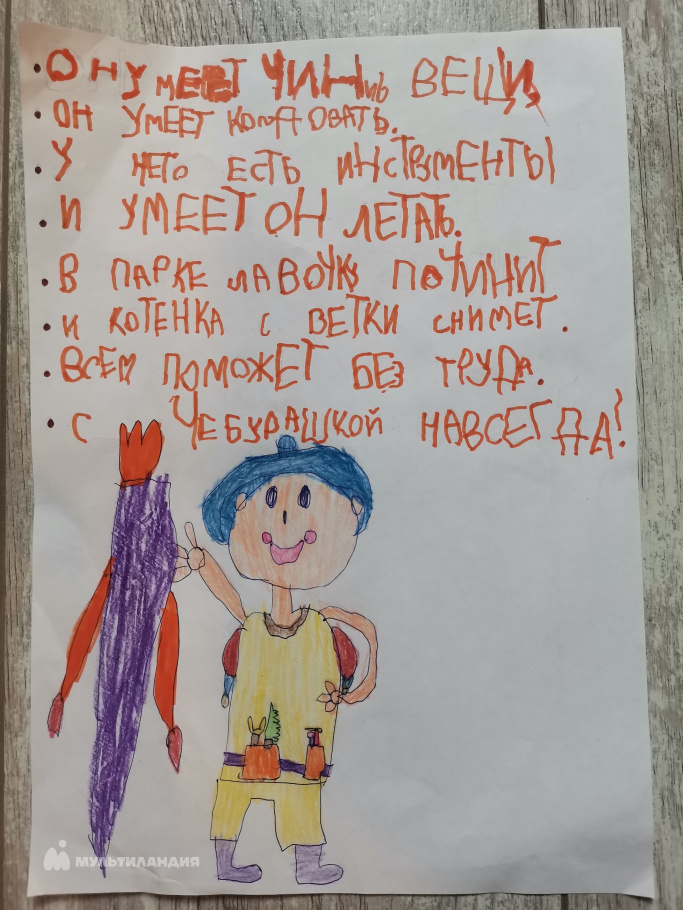 • ОН УМЕЕТ ЧИНИЬ ВЕЩИ,
• ОН УМЕЕТ КОЛДОВАТЬ.
• У НЕГО ЕСТЬ ИНСТРУМЕНТЫ
• И УМЕЕТ ОН ЛЕТАТЬ.
• В ПАРКЕ ЛАВОЧКУ ПОЧИНИТ
• И КОТЕНКА С ВЕТКИ СНИМЕТ.
• ВСЕМ ПОМОЖЕТ БЕЗ ТРУДА.
• С ЧЕБУРАШКОЙ НАВСЕГДА!
МУЛЬТИЛАНДИЯ